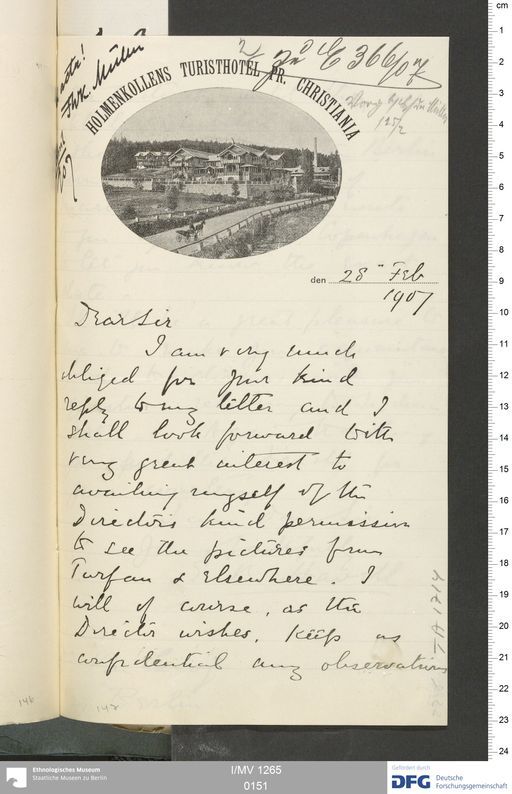 Frk. Müller
2/ E 366/07
HOLMENKOLLENS TURISTHOTEL PR. CHRISTIANIA
den 28" Feb
1907
Dear Sir
I am very much
obliged for your kind
reply to my letter and I
shall look forward with
very great interest to
availing myself of the
Directors kind permission
to see the pictures from
Turfan & elsewhere. I
will of course, as the
Director wishes, keep as
confidential any observations
TA 1714
146
147
cm
1
2
3
4
5
6
7
8
9
10
11
12
13
14
15
16
17
18
19
20
21
22
23
24
Ethnologisches Museum
Staatliche Museen zu Berlin
I/MV 1265
0151
Gefördert durch
DFG Deutsche
Forschungsgemeinschaft